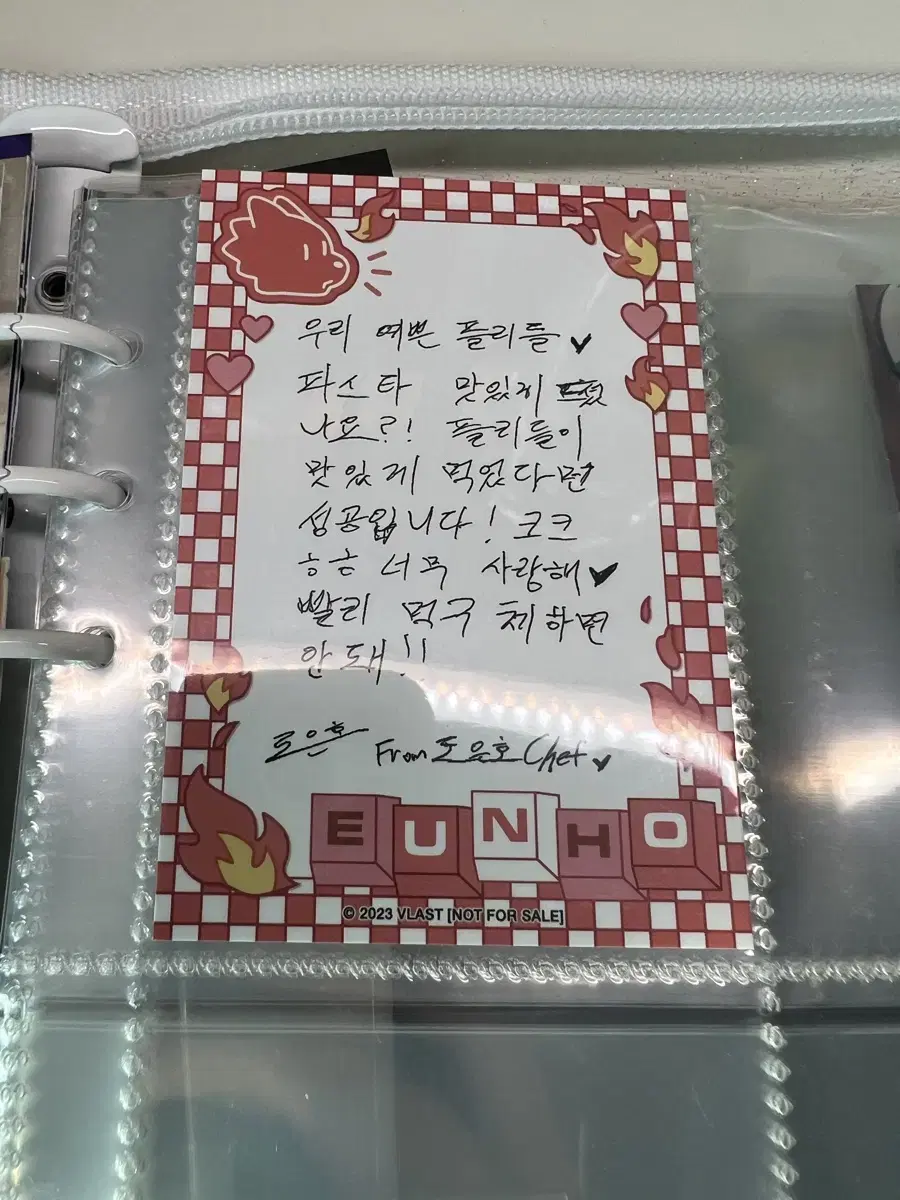 우리 예쁜 플리들 ♥
파스타 맛있게 드셨
나요?! 플리들이
맛있게 먹었다면
성공입니다! ㅋㅋㅋ
ㅎㅎ 너무 사랑해 ♥
빨리 먹구 체하면
안돼!!
도은호 From 도은호 Chef ♥
EUNHO
© 2023 VLAST [NOT FOR SALE]